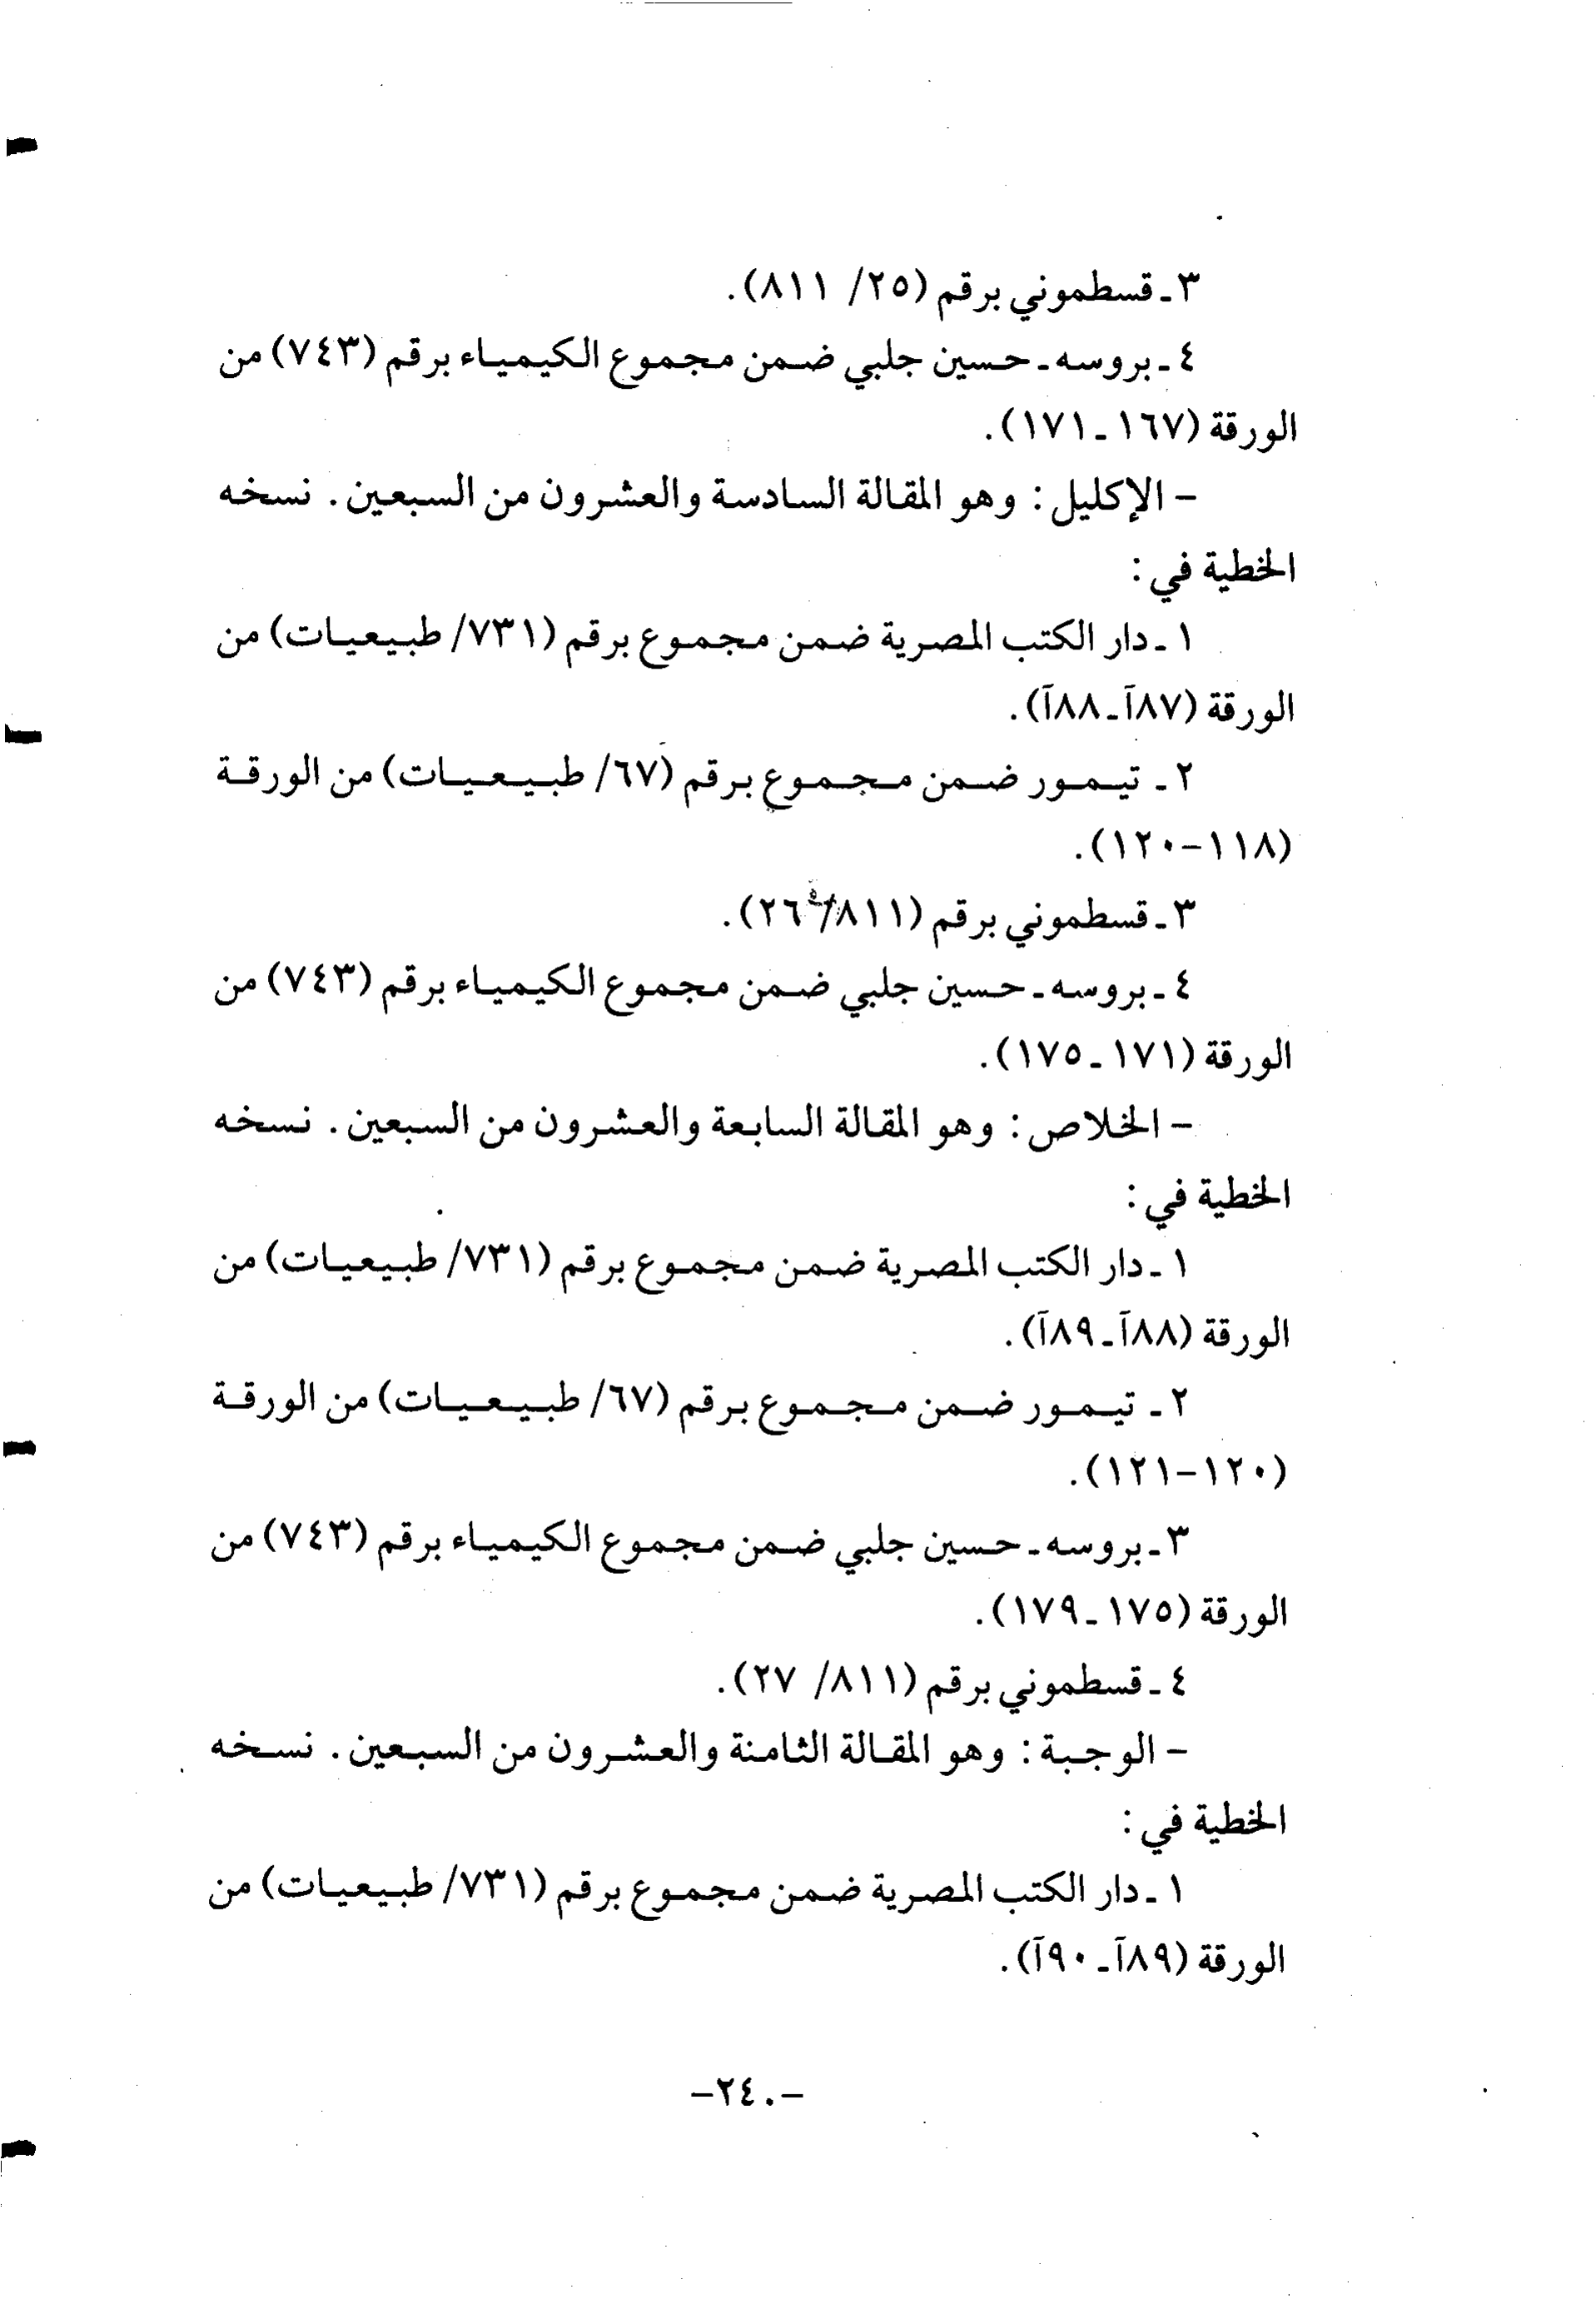 ٣ـ قسطموني برقم (٢٥/ ٨١١).
٤ـ بروسه ـ حسين جلبي ضمن مجموع الكيمياء برقم (٧٤٣) من
الورقة (١٦٧ـ١٧١).
– الإكليل: وهو المقالة السادسة والعشرون من السبعين. نسخه
الخطية في:
١ـ دار الكتب المصرية ضمن مجموع برقم (٧٣١/ طبيعيات) من
الورقة (٨٧آـ٨٨آ).
٢ـ تيمور ضمن مجموع برقم (٦٧/ طبيعيات) من الورقة
(١١٨–١٢٠).
٣ـ قسطموني برقم (٨١١/ ٢٦).
٤ـ بروسه ـ حسين جلبي ضمن مجموع الكيمياء برقم (٧٤٣) من
الورقة (١٧١ـ١٧٥).
– الخلاص: وهو المقالة السابعة والعشرون من السبعين. نسخه
الخطية في:
١ـ دار الكتب المصرية ضمن مجموع برقم (٧٣١/ طبيعيات) من
الورقة (٨٨آـ٨٩آ).
٢ـ تيمور ضمن مجموع برقم (٦٧/ طبيعيات) من الورقة
(١٢٠–١٢١).
٣ـ بروسه ـ حسين جلبي ضمن مجموع الكيمياء برقم (٧٤٣) من
الورقة (١٧٥ـ١٧٩).
٤ـ قسطموني برقم (٨١١/ ٢٧).
– الوجبة: وهو المقالة الثامنة والعشرون من السبعين. نسخه
الخطية في:
١ـ دار الكتب المصرية ضمن مجموع برقم (٧٣١/ طبيعيات) من
الورقة (٨٩آـ٩٠آ).
–٢٤٠–